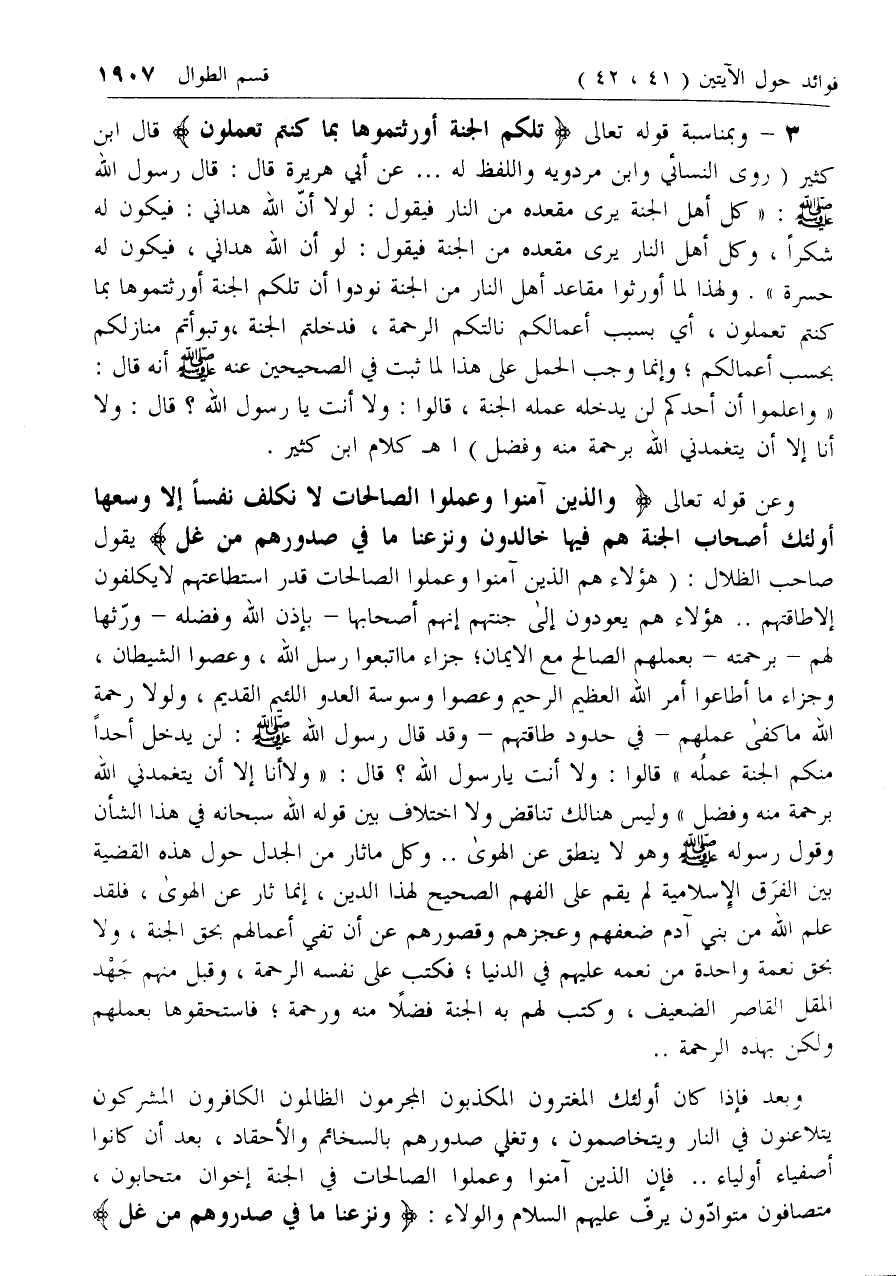 فوائد حول الآيتين ( ٤١ ، ٤٢ ) قسم الطوال ١٩٠٧
٣ – وبمناسبة قوله تعالى ﴿ تلكم الجنة أورثتموها بما كنتم تعملون ﴾ قال ابن
كثير ( روى النسائي وابن مردويه واللفظ له ... عن أبي هريرة قال : قال رسول الله
ﷺ : « كل أهل الجنة يرى مقعده من النار فيقول : لولا أنّ الله هداني : فيكون له
شكراً ، وكل أهل النار يرى مقعده من الجنة فيقول : لو أن الله هداني ، فيكون له
حسرة » . ولهذا لما أورثوا مقاعد أهل النار من الجنة نودوا أن تلكم الجنة أورثتموها بما
كنتم تعملون ، أي بسبب أعمالكم نالتكم الرحمة ، فدخلتم الجنة ،وتبوأتم منازلكم
بحسب أعمالكم ؛ وإنما وجب الحمل على هذا لما ثبت في الصحيحين عنه ﷺ أنه قال :
« واعلموا أن أحدكم لن يدخله عمله الجنة ، قالوا : ولا أنت يا رسول الله ؟ قال : ولا
أنا إلا أن يتغمدني الله برحمة منه وفضل ) ا هـ كلام ابن كثير .
وعن قوله تعالى ﴿ والذين آمنوا وعملوا الصالحات لا نكلف نفساً إلا وسعها
أولئك أصحاب الجنة هم فيها خالدون ونزعنا ما في صدورهم من غل ﴾ يقول
صاحب الظلال : ( هؤلاء هم الذين آمنوا وعملوا الصالحات قدر استطاعتهم لايكلفون
إلاطاقتهم .. هؤلاء هم يعودون إلىٰ جنتهم إنهم أصحابها – بإذن الله وفضله – ورّثها
لهم – برحمته – بعملهم الصالح مع الايمان؛ جزاء مااتبعوا رسل الله ، وعصوا الشيطان ،
وجزاء ما أطاعوا أمر الله العظيم الرحيم وعصوا وسوسة العدو اللئيم القديم ، ولولا رحمة
الله ماكفىٰ عملهم – في حدود طاقتهم – وقد قال رسول الله ﷺ : لن يدخل أحداً
منكم الجنة عملُه » قالوا : ولا أنت يارسول الله ؟ قال : « ولاأنا إلا أن يتغمدني الله
برحمة منه وفضل » وليس هنالك تناقض ولا اختلاف بين قوله الله سبحانه في هذا الشأن
وقول رسوله ﷺ وهو لا ينطق عن الهوىٰ .. وكل ماثار من الجدل حول هذه القضية
بين الفرَق الإسلامية لم يقم على الفهم الصحيح لهذا الدين ، إنما ثار عن الهوىٰ ، فلقد
علم الله من بني آدم ضعفهم وعجزهم وقصورهم عن أن تفي أعمالهم بحق الجنة ، ولا
بحق نعمة واحدة من نعمه عليهم في الدنيا ؛ فكتب على نفسه الرحمة ، وقبل منهم جَهْد
المقل القاصر الضعيف ، وكتب لهم به الجنة فضلًا منه ورحمة ؛ فاستحقوها بعملهم
ولكن بهذه الرحمة ..
وبعد فإذا كان أولئك المغترون المكذبون المجرمون الظالمون الكافرون المشركون
يتلاعنون في النار ويتخاصمون ، وتغلي صدورهم بالسخائم والأحقاد ، بعد أن كانوا
أصفياء أولياء .. فإن الذين آمنوا وعملوا الصالحات في الجنة إخوان متحابون ،
متصافون متوادّون يرفّ عليهم السلام والولاء : ﴿ ونزعنا ما في صدروهم من غل ﴾